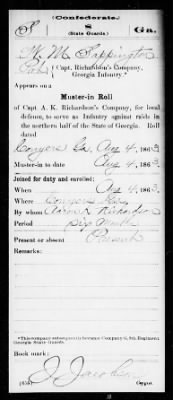 (Confederate.)
S (State Guards.) Ga.
W. M. Sappington
Pvt., Capt. Richardson's Company,
Georgia Infantry.*
Appears on a
Muster-in Roll
of Capt. A. K. Richardson's Company, for local
defense, to serve as Infantry against raids in
the northern half of the State of Georgia. Roll
dated
Conyers Ga, Aug 4, 1863
Muster-in to date Aug 4, 1863.
Joined for duty and enrolled:
When Aug 4, 1863.
Where Conyers Ga,
By whom Richardson
Period Six Months
Present or absent Present
Remarks:
*This company subsequently became Company G, 8th Regiment
Georgia State Guards.
Book mark:
J. Jacobs
(656) Copyist.